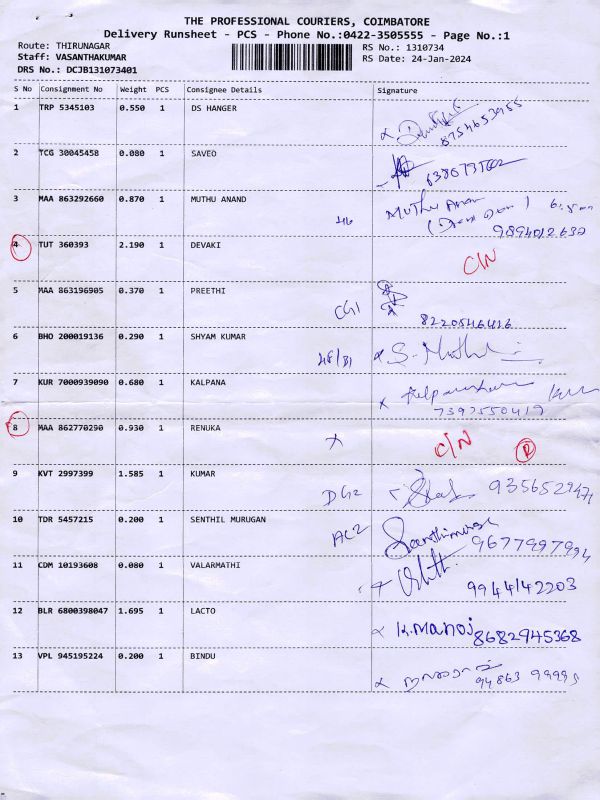 THE PROFESSIONAL COURIERS, COIMBATORE
Delivery Runsheet - PCS - Phone No.:0422-3505555 - Page No.:1
Route: THIRUNAGAR RS No.: 1310734
Staff: VASANTHAKUMAR RS Date: 24-Jan-2024
DRS No.: DCJB131073401
S No Consignment No Weight PCS Consignee Details Signature
1 TRP 5345103 0.550 1 DS HANGER
8754653955
2 TCG 30045458 0.080 1 SAVEO
3 MAA 863292660 0.870 1 MUTHU ANAND Muthu Anand
9894012632
4 TUT 360393 2.190 1 DEVAKI C/N
5 MAA 863196905 0.370 1 PREETHI CG1
8220546416
6 BHO 200019136 0.290 1 SHYAM KUMAR 48/B1
7 KUR 7000939090 0.680 1 KALPANA
7397550419
8 MAA 862770290 0.930 1 RENUKA X C/N R
9 KVT 2997399 1.585 1 KUMAR DG2
10 TDR 5457215 0.200 1 SENTHIL MURUGAN AC2
9677997994
11 CDM 10193608 0.080 1 VALARMATHI
9944142203
12 BLR 6800398047 1.695 1 LACTO K.Manoj 8682945368
13 VPL 945195224 0.200 1 BINDU
94863 99995